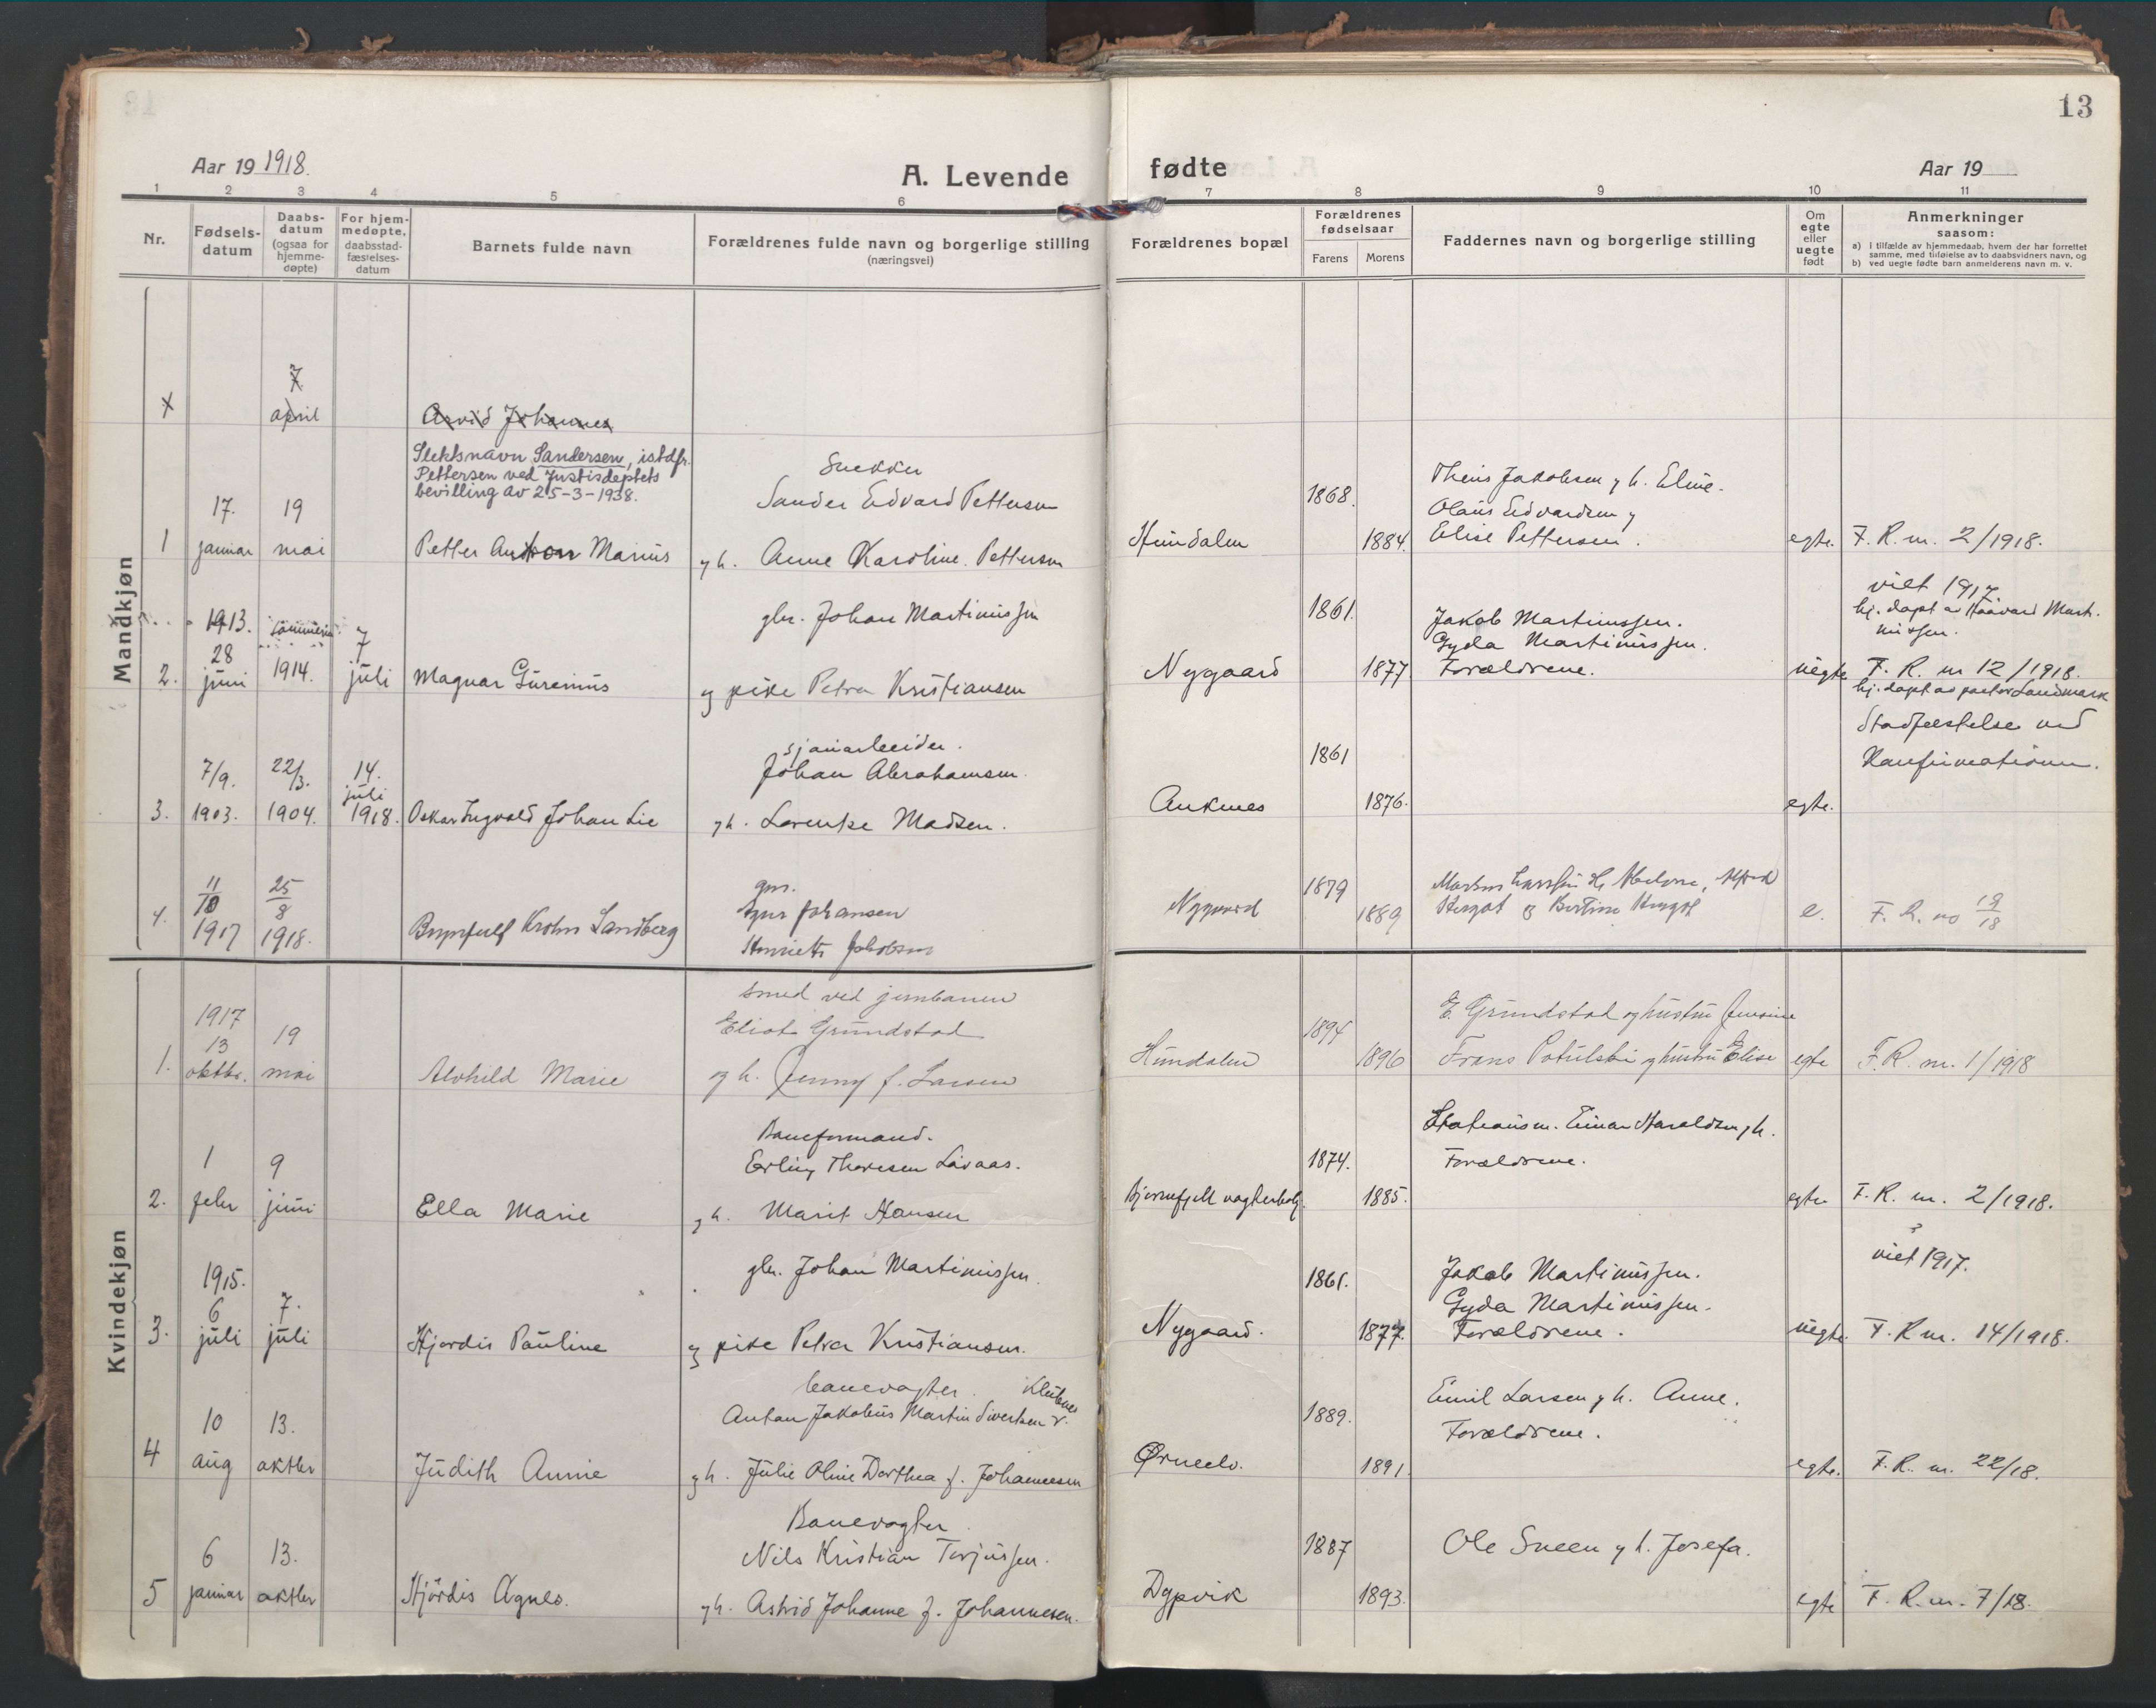 13
Aar 19 1918.
A. Levende fødte
Aar 19
1 2 3 4 5 6 7 8 9 10 11
Nr.
Fødsels-
datum
Daabs-
datum
(ogsaa for
hjemme-
døpte)
For hjem-
medøpte,
daabsstad-
fæstelses-
datum
Barnets fulde navn
Forældrenes fulde navn og borgerlige stilling
(næringsvei)
Forældrenes bopæl
Forældrenes
fødselsaar
Farens Morens
Faddernes navn og borgerlige stilling
Om
egte
eller
uegte
født
Anmerkninger
saasom:
a) i tilfælde av hjemmedaab, hvem der har forrettet
samme, med tilføielse av to daabsvidners navn, og
b) ved uegte fødte barn anmelderens navn m. v.
Mandkjøn
7
april
Arvid Johannes
Slektsnavn Sandersen, istdfr.
Pettersen ved Justisdeptets
bevilling av 25-3-1938.
1
17.
januar
19
mai
Petter Anton Marius
Snekker
Sander Edvard Pettersen
g h. Anne Karoline Pettersen
Hundalen
1868.
1884.
Theis Jakobsen g h. Eline.
Olaus Edvardsen g
Elise Pettersen.
egte.
F. R. nr. 2/1918.
2.
1913.
28
juni
1914.
7
juli
Magnar Gurenius
gbr. Johan Martinussen
og pike Petra Kristiansen
Nygaard
1861.
1877
Jakob Martinussen.
Gyda Martinussen.
Forældrene.
uegte
viet 1917
hj. døpt av Haavard Mart-
nussen.
F. R. nr 12/1918.
hj. døpt av pastor Landmark
Stadfæstelse ved
Konfirmationen.
3.
7/9.
1903.
22/3.
1904.
14.
juli
1918.
Oskar Ingvald Johan Lie
sjauarbeider.
Johan Abrahamsen.
g h. Lorentse Madsen.
Ankenes
1861
1876.
egte.
4.
11/10
1917
25/8
1918.
Brynjulf Krohn Sandberg
gbr.
Johansen
Henriette Jakobsen
Nygaard
1879
1889
e.
F. R. no 19/18
Kvindekjøn
1.
1917
13
oktbr.
19
mai
Alvhild Marie
Smed ved jernbanen
Eliot Grundstad
og h. Jenny f. Larsen
Hundalen
1894
1896
E. Grundstad og hustru Jensine
Frans Potulski og hustru Elise
egte
F. R. nr. 1/1918
2.
1
febr
9
juni
Ella Marie
Baneformand.
Erling Thoresen Livaas.
g h. Marit Hansen
Bjørnefjell vogterbolig.
1874.
1885.
Stationsm. Einar Haraldsen g h.
Forældrene.
egte
F. R. nr. 2/1918.
3.
1915.
6
juli
7.
juli
Hjørdis Pauline
gbr. Johan Martinussen.
og pike Petra Kristiansen.
Nygaard.
1861.
1877.
Jakob Martinussen.
Gyda Martinussen.
Forældrene.
uegte.
viet 1917.
F. R nr. 14/1918.
4
10
aug
13.
oktber
Judith Annie
banevogter.
Anton Jakobus Martin Sivertsen
g h. Julie Oline Dorthea f. Johannesen
Ørnelv.
1889.
1891.
Emil Larsen g h. Anne.
Forældrene.
egte.
F. R. nr. 22/18.
5
6
januar
13.
oktber
Hjördis Agnes.
Banevogter
Nils Kristian Torjussen.
g h. Astrid Johanne f. Johannesen.
Dypvik
1887
1893.
Ole Sneen g h. Josefa.
egte
F. R. nr. 7/18.